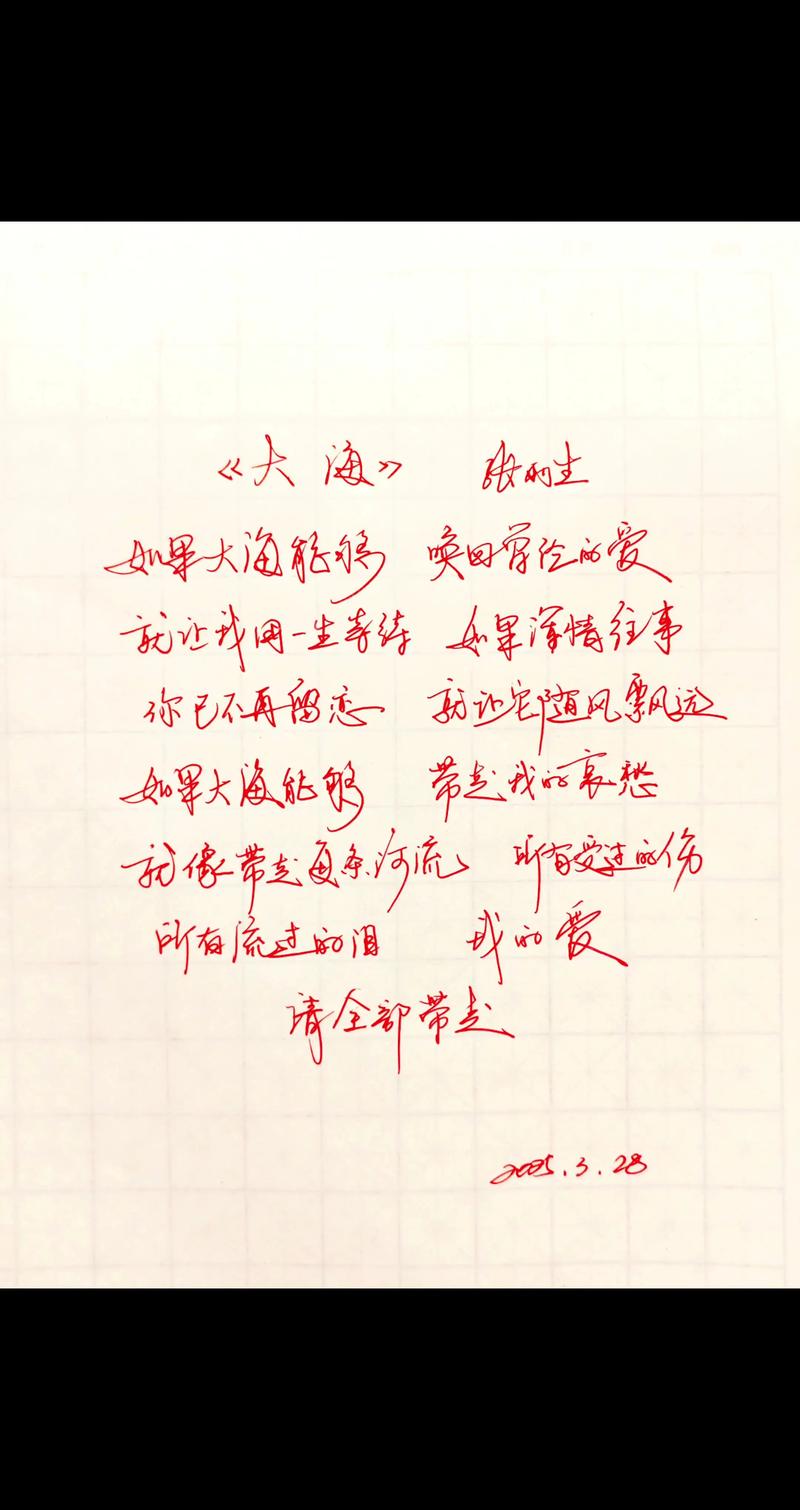 《大海》 张雨生
如果大海能够 唤回曾经的爱
就让我用一生等待 如果深情往事
你已不再留恋 就让它随风飘远
如果大海能够 带走我的哀愁
就像带走每条河流 所有受过的伤
所有流过的泪 我的爱
请全部带走
2025.3.28